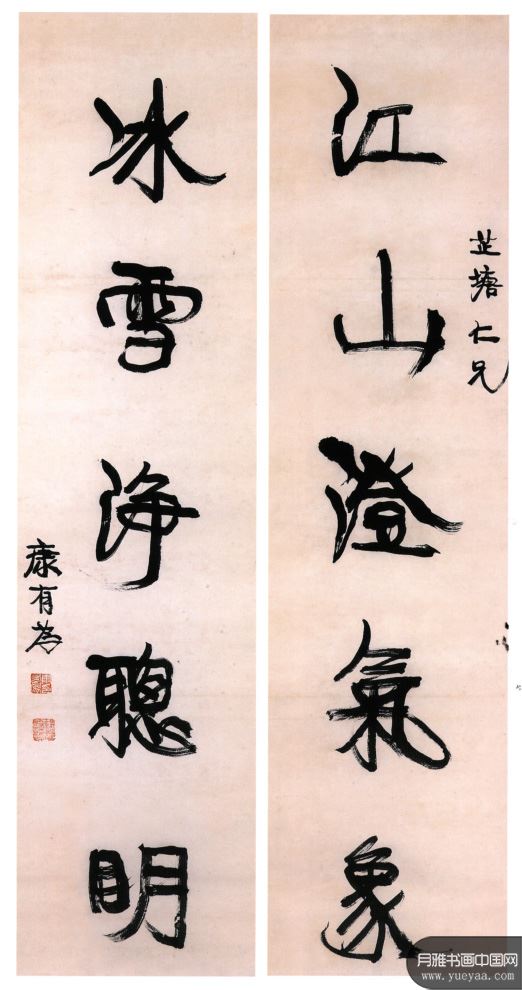 芷塘仁兄
江山澄氣象
冰雪浄聰眀
康有為
月雅书画中国网
www.yueyaa.com